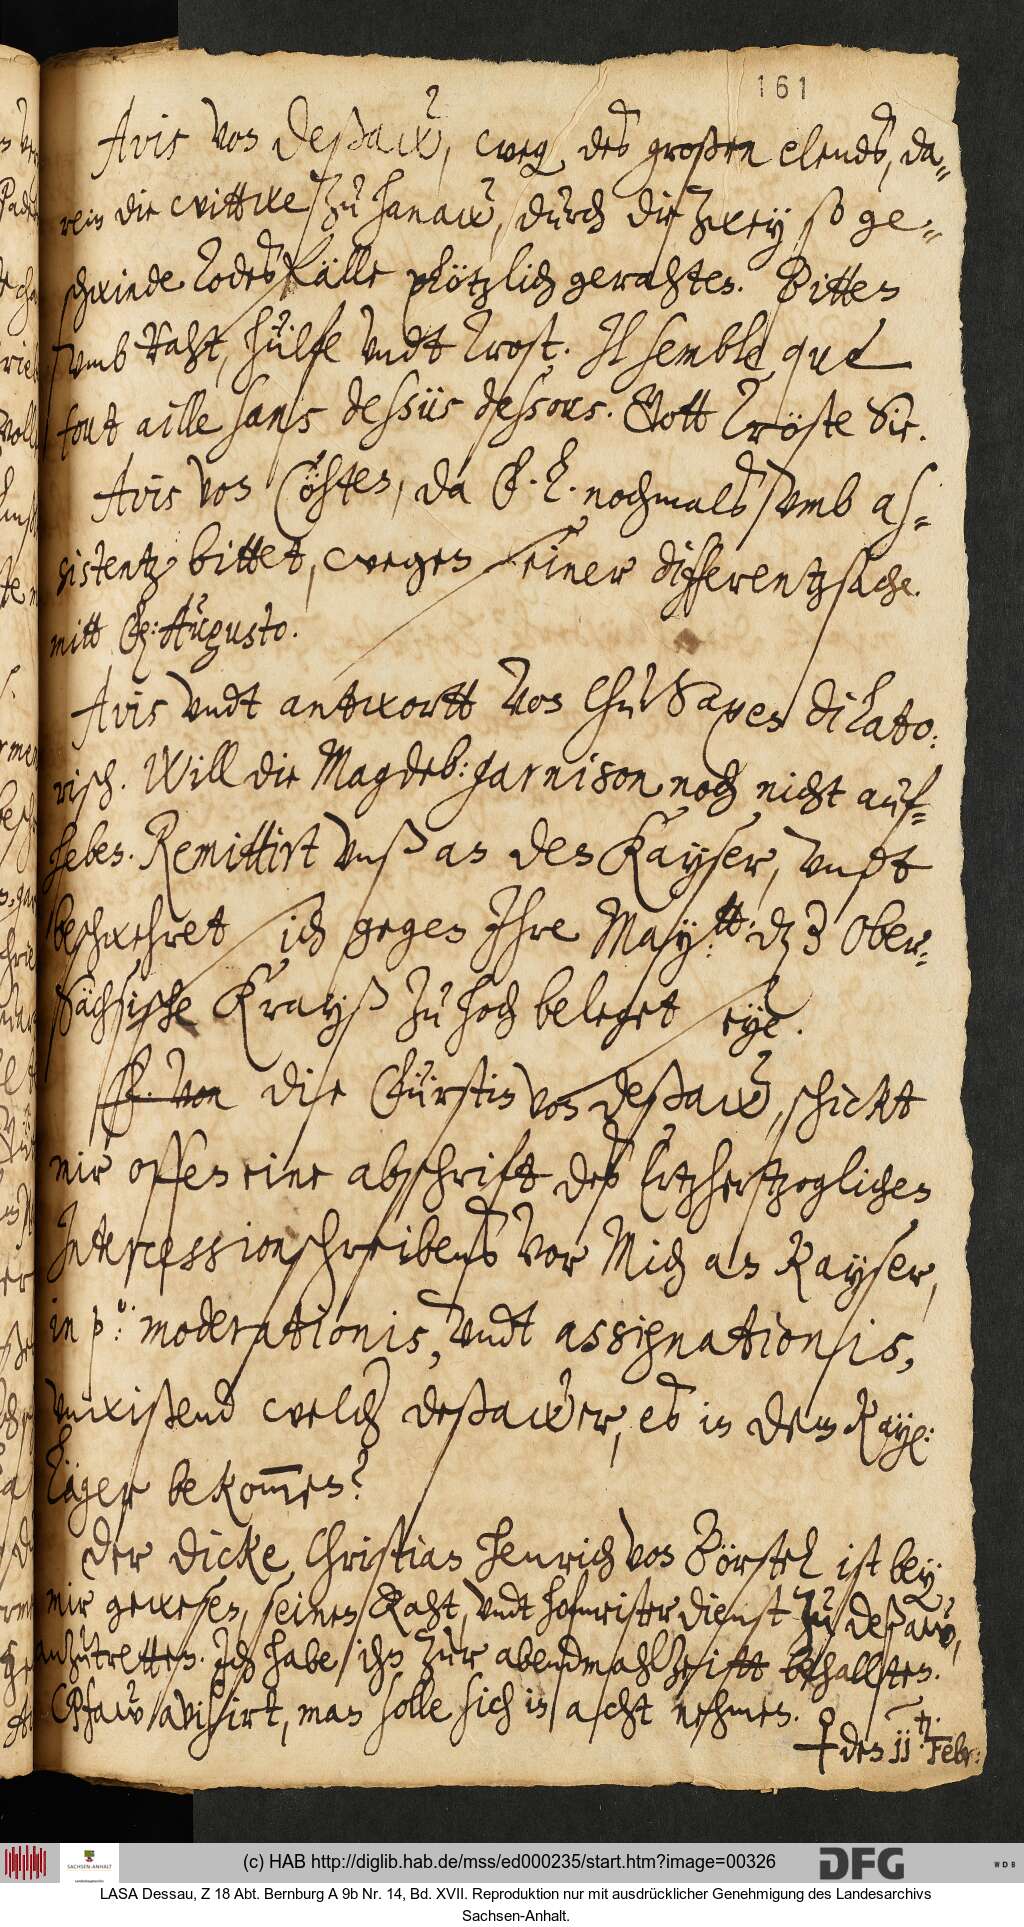 161
Avis von Deßaw, weg. des großen elends, da-
rein die wittwe zu Hanaw, durch die zwey so ge-
schwinde Todesfälle plötzlich gerahten. Bitten
umb Raht, hülfe undt Trost. Il semble que
tout aille sans dessus dessous. Gott tröste Sie.
Avis von Cöhten, da F. L. nochmals umb as-
sistentz bittet, wegen seiner differentzsache
mitt F: Augusto.
Avis undt antwortt von ChurSaxen dilato:
risch. Will die Magdeb: garnison noch nicht auf-
heben. Remittirt unß an den Kayser, undt
beschwehret sich gegen Ihre May:tt: dz der Ober-
Sächsische Krayß zu hoch beleget seye.
F. von die Fürstin von Deßaw, schickt
mir offen eine abschrift des Ertzhertzoglichen
Intercessionschreibens vor Mich an Kayser,
in p.o: moderationis, undt assignationis,
unwißend welch Deßawer, es in dem Kay:
Läger bekommen?
Der dicke Christian Henrich von Börstel ist bey
mir gewesen, seinen Raht, undt hofmeister dienst zu Deßaw,
anzutretten. Ich habe ihn zur abendmahlzeitt behallten.
Pfaw avisirt, man solle sich in acht nehmen.
den 11.ten: Febr:
(c) HAB http://diglib.hab.de/mss/ed000235/start.htm?image=00326
SACHSEN-ANHALT
DFG
WDB
LASA Dessau, Z 18 Abt. Bernburg A 9b Nr. 14, Bd. XVII. Reproduktion nur mit ausdrücklicher Genehmigung des Landesarchivs
Sachsen-Anhalt.